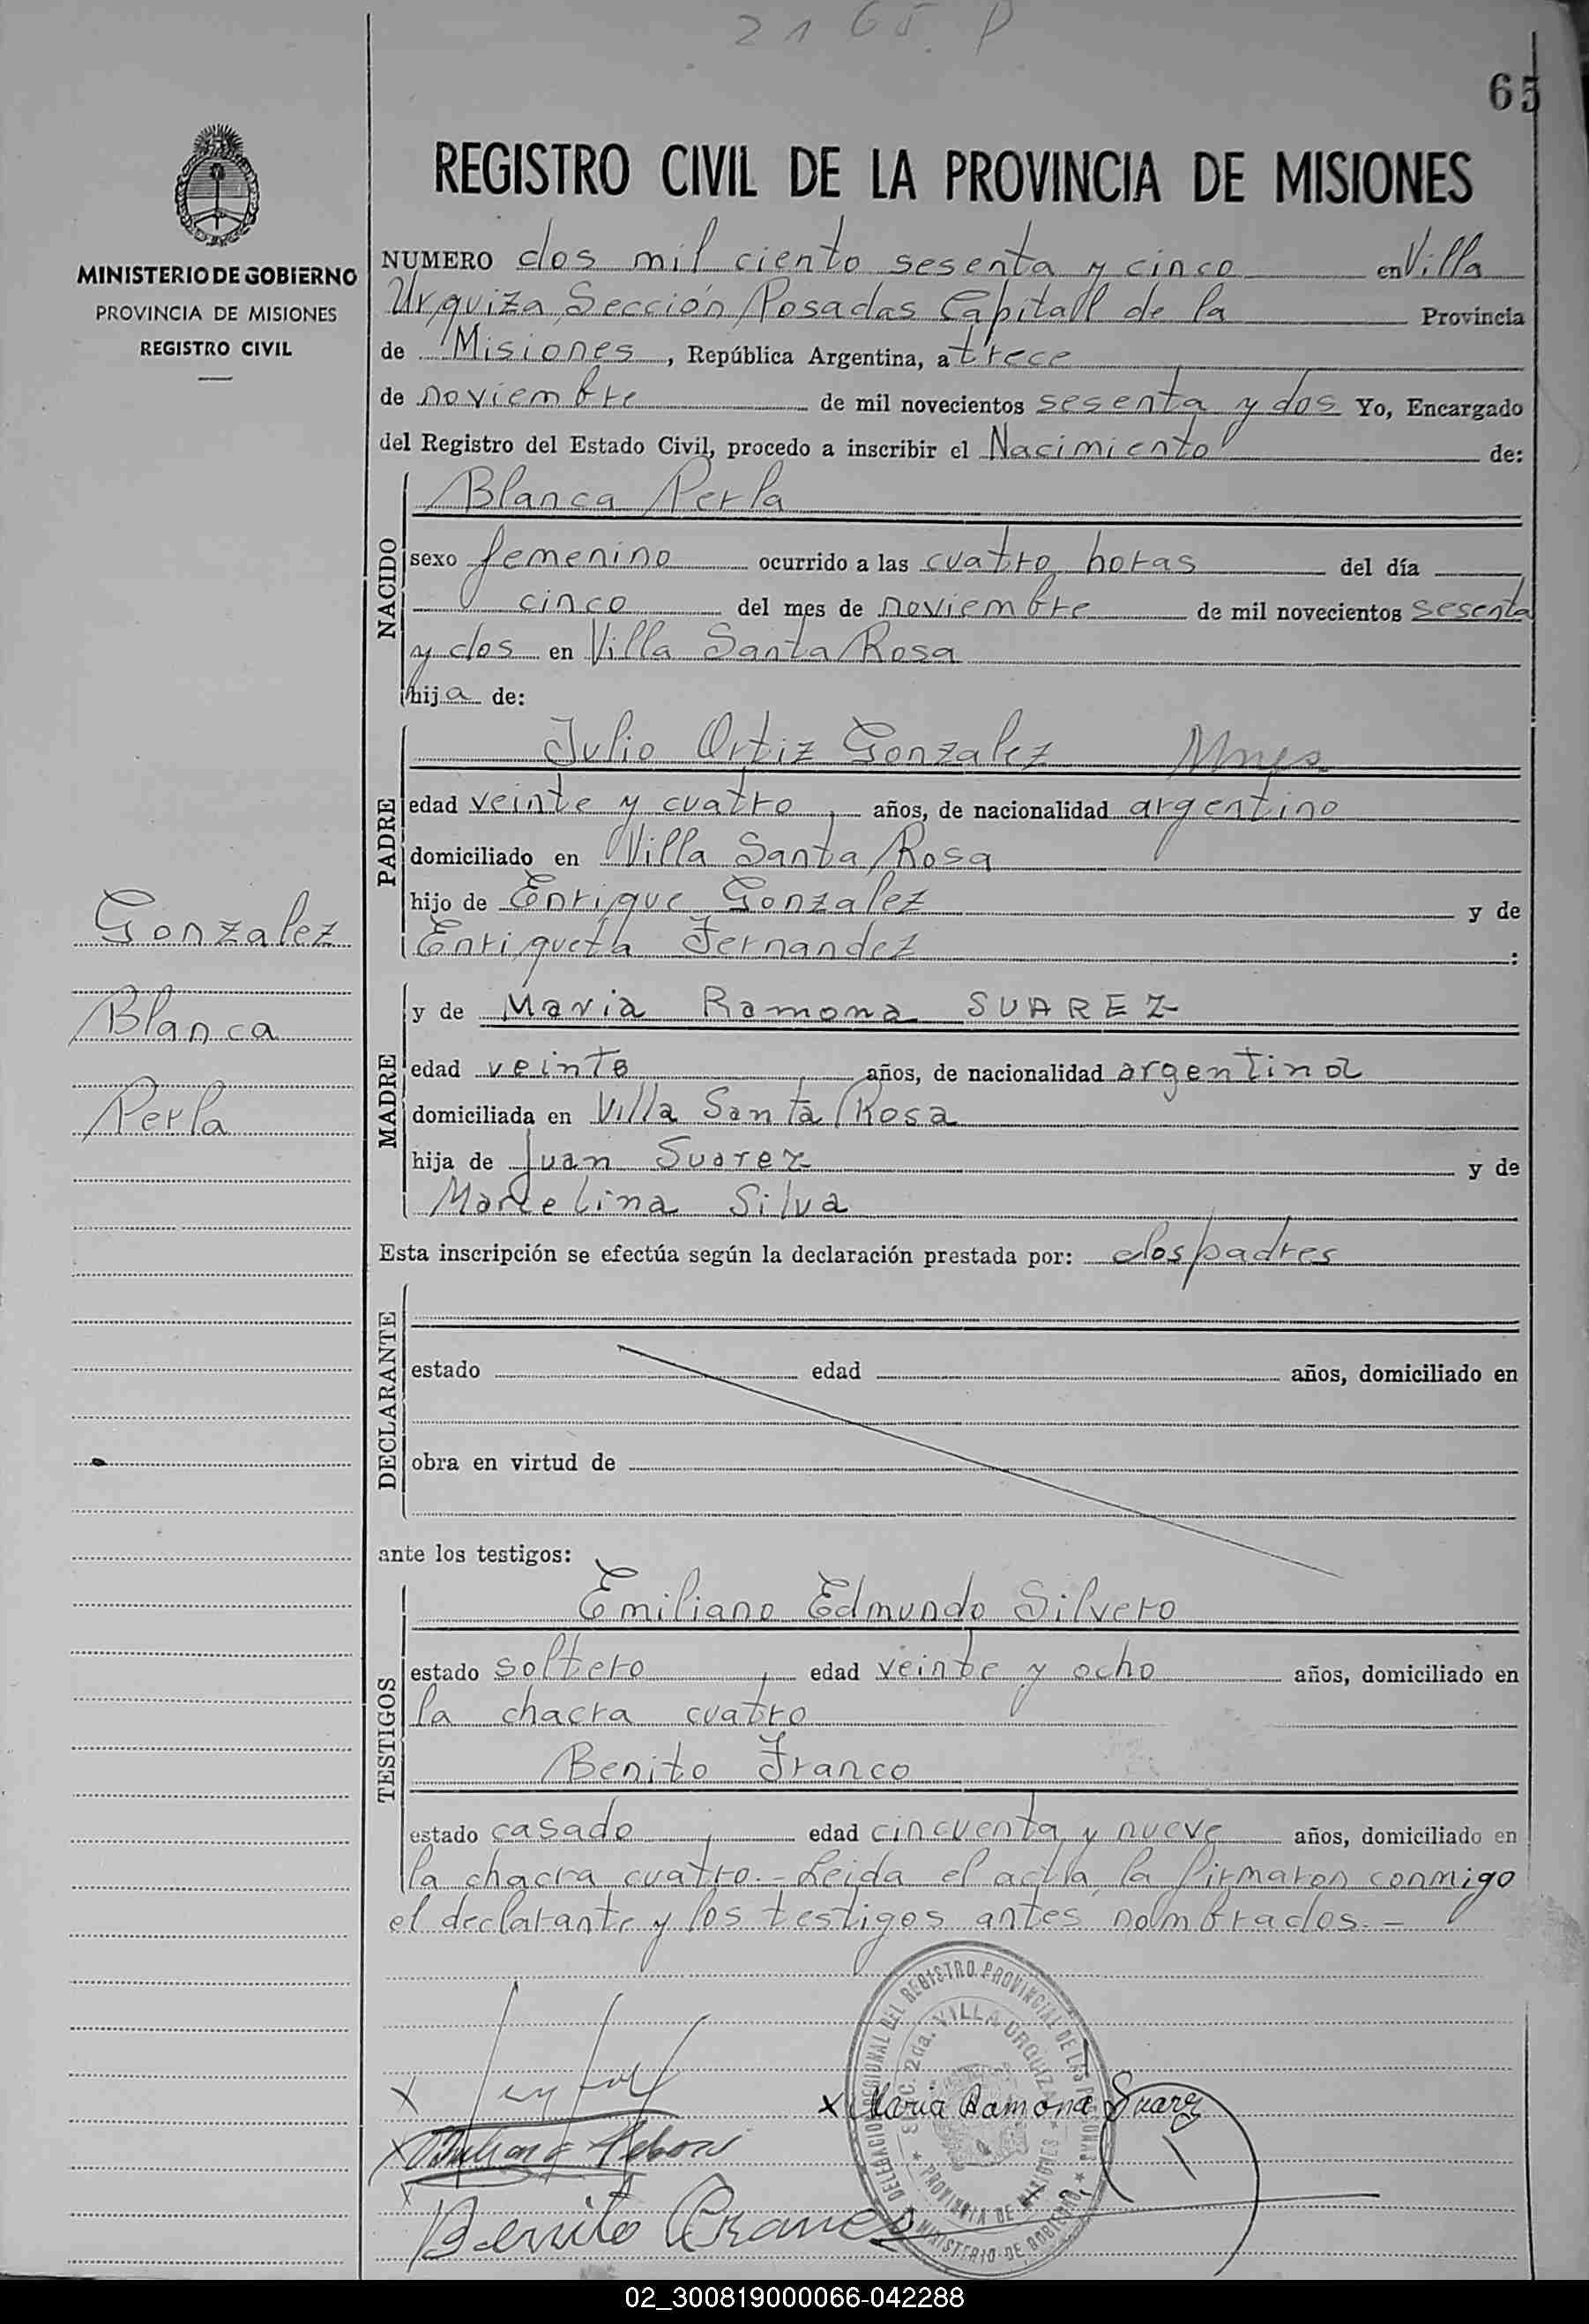 2165. P
65
MINISTERIO DE GOBIERNO
PROVINCIA DE MISIONES
REGISTRO CIVIL
REGISTRO CIVIL DE LA PROVINCIA DE MISIONES
NUMERO dos mil ciento sesenta y cinco en Villa
Urquiza Sección Posadas Capitall de la Provincia
de Misiones, República Argentina, a trece
de noviembre de mil novecientos sesenta y dos Yo, Encargado
del Registro del Estado Civil, procedo a inscribir el Nacimiento de:
NACIDO
Blanca Perla
sexo femenino ocurrido a las cuatro horas del día
cinco del mes de noviembre de mil novecientos sesenta
y dos en Villa Santa Rosa
hija de:
PADRE
Julio Ortiz Gonzalez
edad veinte y cuatro años, de nacionalidad argentino
domiciliado en Villa Santa Rosa
hijo de Enrique Gonzalez y de
Enriqueta Fernandez :
Gonzalez
Blanca
Perla
MADRE
y de Maria Ramona SUAREZ
edad veinte años, de nacionalidad argentina
domiciliada en Villa Santa Rosa
hija de Juan Suarez y de
Marcelina Silva
Esta inscripción se efectúa según la declaración prestada por: los padres
DECLARANTE
estado edad años, domiciliado en
obra en virtud de
ante los testigos:
TESTIGOS
Emiliano Edmundo Silvero
estado soltero edad veinte y ocho años, domiciliado en
la chacra cuatro
Benito Franco
estado casado edad cincuenta y nueve años, domiciliado en
la chacra cuatro.- Leida el acta, la firmaron conmigo
el declarante y los testigos antes nombrados.-
DELEGACION REGIONAL DEL REGISTRO PROVINCIAL DE LAS PERSONAS
SEC. 2da. VILLA URQUIZA
PROVINCIA DE MISIONES
MINISTERIO DE GOBIERNO
x Maria Ramona Suarez
Benito Franco
02_300819000066-042288